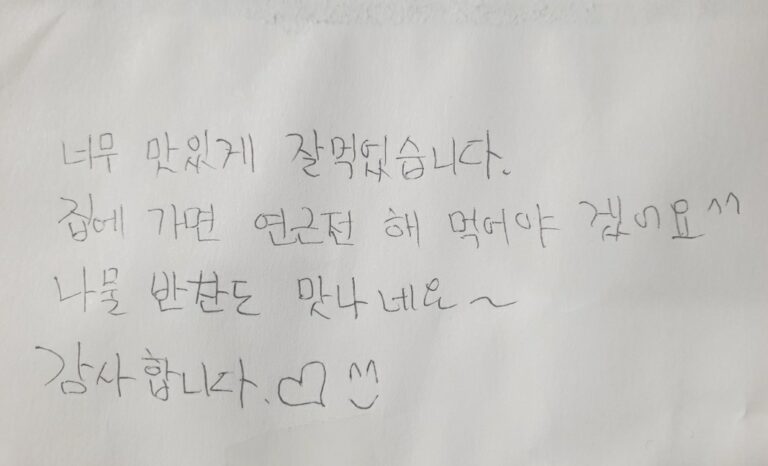 너무 맛있게 잘먹었습니다.
집에 가면 연근전 해 먹어야 겠어요^^
나물 반찬도 맛나네요~
감사합니다.♡ ^^